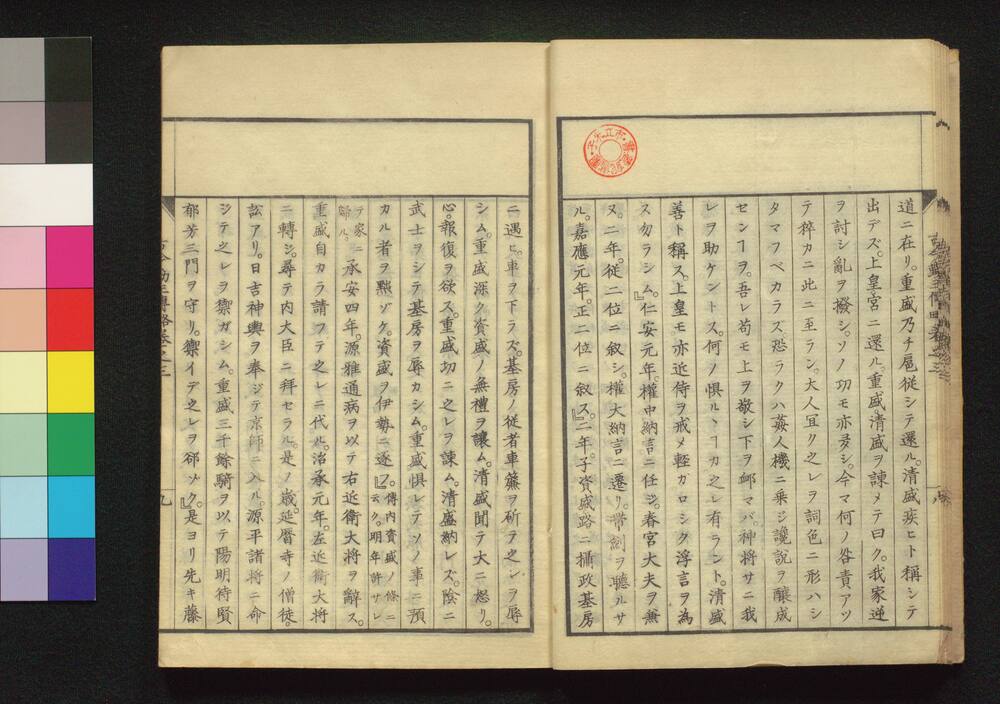 道ニ在リ。重盛乃チ扈従シテ還ル。清盛疾ヒト稱シテ
出デズ。上皇宮ニ還ル。重盛清盛ヲ諫メテ曰ク。我家逆
ヲ討シ亂ヲ撥シ。ソノ功モ亦多シ。今マ何ノ咎責アツ
テ粹カニ此ニ至ラン。大人冝ク之レヲ詞色ニ形ハシ
タマフベカラズ恐ラクハ姦人機ニ乗シ讒説ヲ醸成
センヿヲ。吾レ苟モ上ヲ敬シ下ヲ䘏マバ。神将サニ我
レヲ助ケントス。何ノ惧ルヽヿカ之レ有ラント。清盛
善ト稱ス。上皇モ亦近侍ヲ戒メ軽ガロシク浮言ヲ為
ス勿ラシム。』仁安元年。權中納言ニ任ジ。春宮大夫ヲ兼
ヌ。二年。従二位ニ叙シ。權大納言ニ遷リ。帯劍ヲ聴ルサ
ル。嘉應元年。正二位ニ叙ス。』二年。子資盛路ニ攝政基房
ニ遇ヒ。車ヲ下ラズ。基房ノ従者車簾ヲ斫テ之レヲ辱
シム。重盛深ク資盛ノ無禮ヲ讓ム。清盛聞テ大ニ怒リ。
心報復ヲ欲ス。重盛切ニ之レヲ諫ム。清盛納レズ。陰ニ
武士ヲシテ基房ヲ辱カシム。重盛惧レテソノ事ニ預
カル者ヲ黙ゾケ。資盛ヲ伊勢ニ逐フ。傳内資盛ノ條ニ云ク。明年許サレ
ヲ家ニ歸ル。承安四年。源雅通病ヲ以テ右近衛大将ヲ辭ス。
重盛自カラ請フテ之レニ代ル。治承元年。左近衛大将
ニ轉ジ。尋テ内大臣ニ拜セラル。是ノ嵗。延暦寺ノ僧徒。
訟アリ。日吉神輿ヲ奉ジテ京師ニ入ル。源平諸将ニ命
ジテ之レヲ禦ガシム。重盛三千餘騎ヲ以テ陽明待賢
郁芳三門ヲ守リ。禦イデ之レヲ郤ゾク。』是ヨリ先キ藤
九